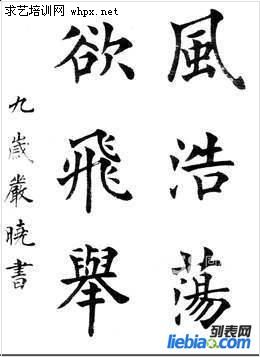 求艺培训网 whpx.net
風浩蕩
欲飛舉
九歲嚴曉書
列表网
liebiao.com